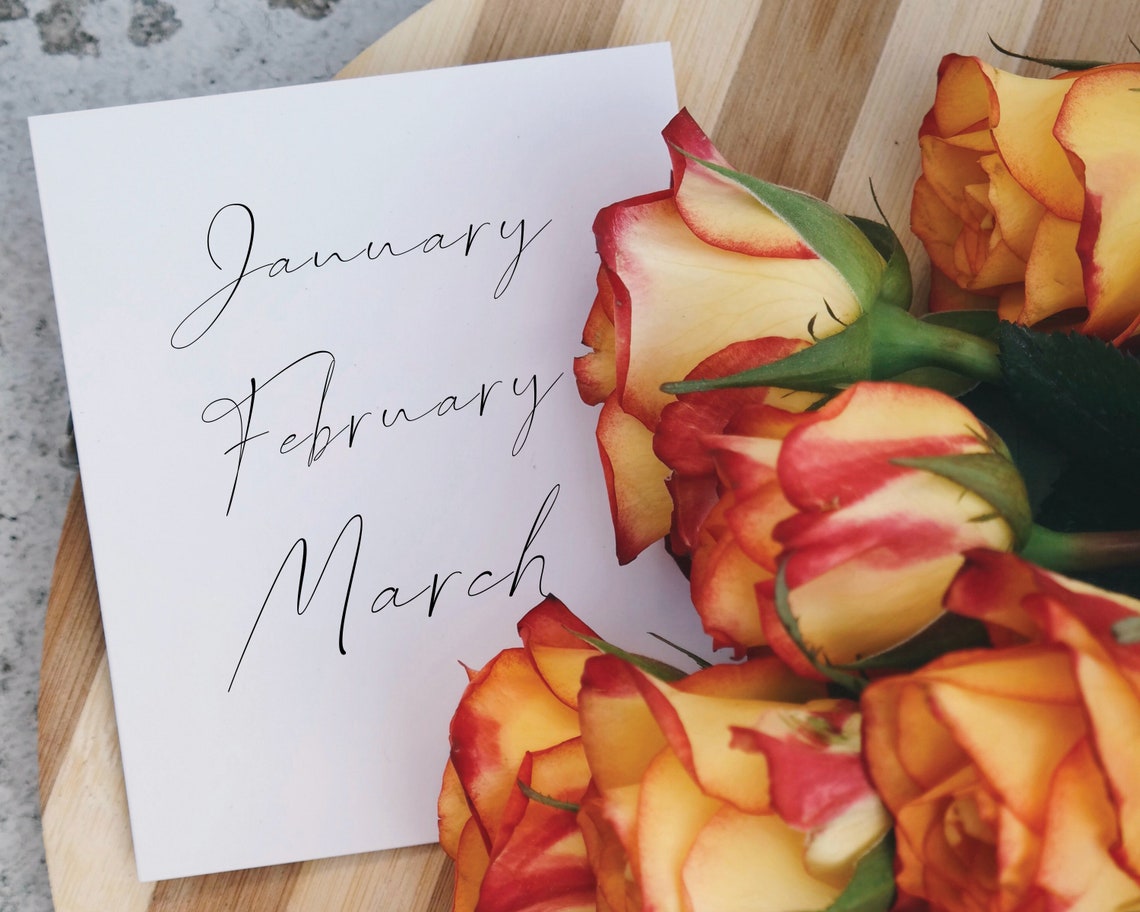 January
February
March